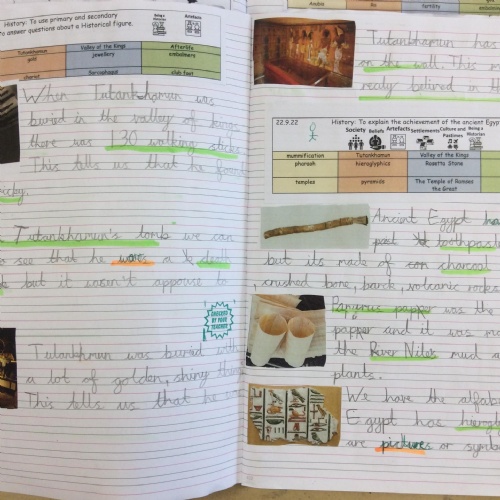 History: To use primary and secondary
to answer questions about a Historical figure.
Being a Historian
Artefacts
Tutankhamun
Valley of the Kings
Afterlife
gold
jewellery
embalmers
chariot
Sarcophagus
club foot
When Tutankhamun was
buried in the valley of kings
there was 130 walking sticks
This tells us that he found
Tutankhamun's tomb we can
see that he was a
but it wasn't appouse to
CHECKED BY YOUR TEACHER
Tutankhmun was buried with
a lot of golden, shiny
This tells us that he
Anubis
Ra
fertility
Tutankhamun has
on the wall. This
realy belived in the
22.9.22
History: To explain the achievement of the ancient Egypt
Society
Beliefs
Artefacts
Settlements
Culture and Pastimes
Being a Historian
mummification
Tutankhamun
Valley of the Kings
pharaoh
hieroglyphics
Rosetta Stone
temples
pyramids
The Temple of Ramses the Great
Ancient Egypt
past toothpast
but its made of charcoal
crushed bone, barck, volcanic rocks
Papyrus papper was the
papper and it was
the River Niles mud
plants.
We have the alfab
Egypt has hierogl
are pictures or symbo